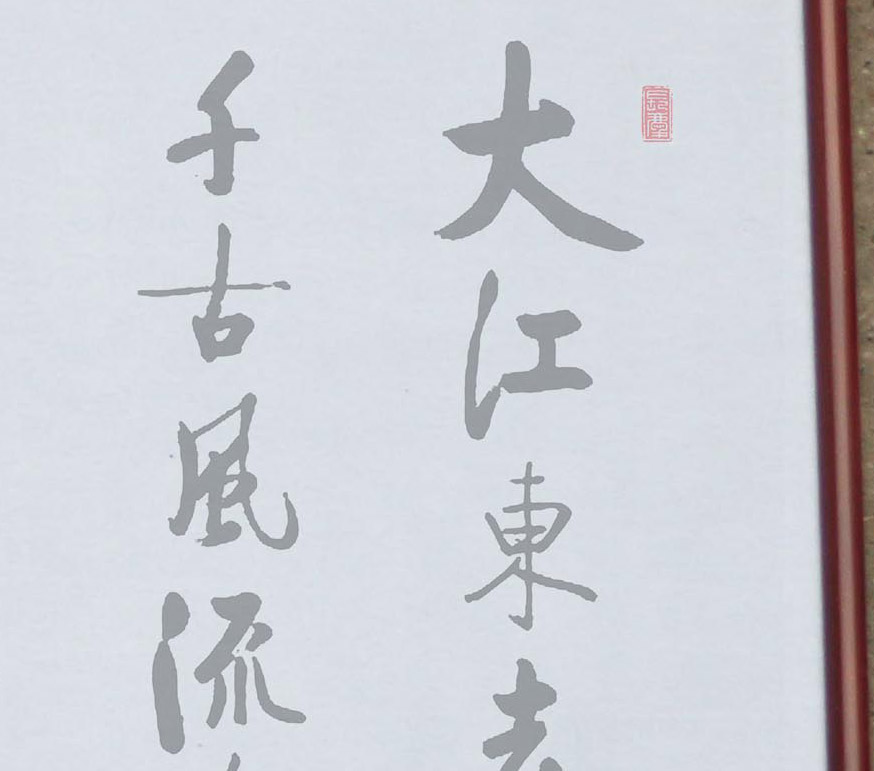 大江東去
千古風流